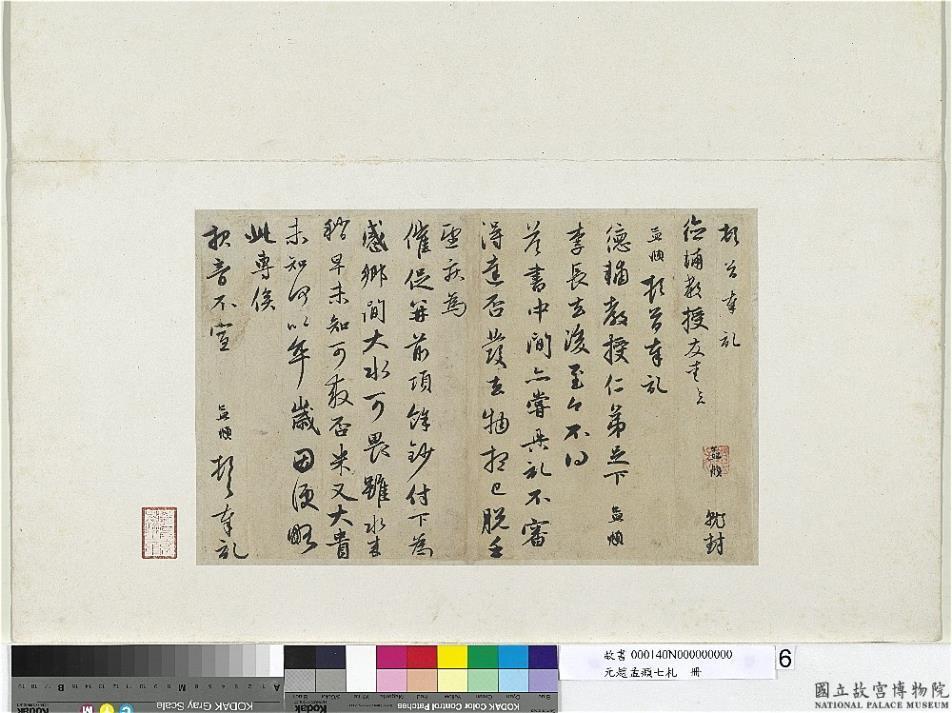 頓首奉記
德輔教授友愛足下
孟頫 就封
孟頫頓首奉記
德輔教授仁弟足下 孟頫
李長去後至今不得
答書中間亦嘗具記不審
得達否發去物想已脫手
望疾為
催促并前項餘鈔付下為
感鄉間大水可畏雖水來
稍早未知可救否米又大貴
未知何以卒歲因便略
此專俟
報音不宣 孟頫 頓首奉記
故書 000140N000000000
元趙孟頫七札 冊
6
KODAK Gray Scale
KODAK Color Control Patches
Kodak
國立故宮博物院
NATIONAL PALACE MUSEUM